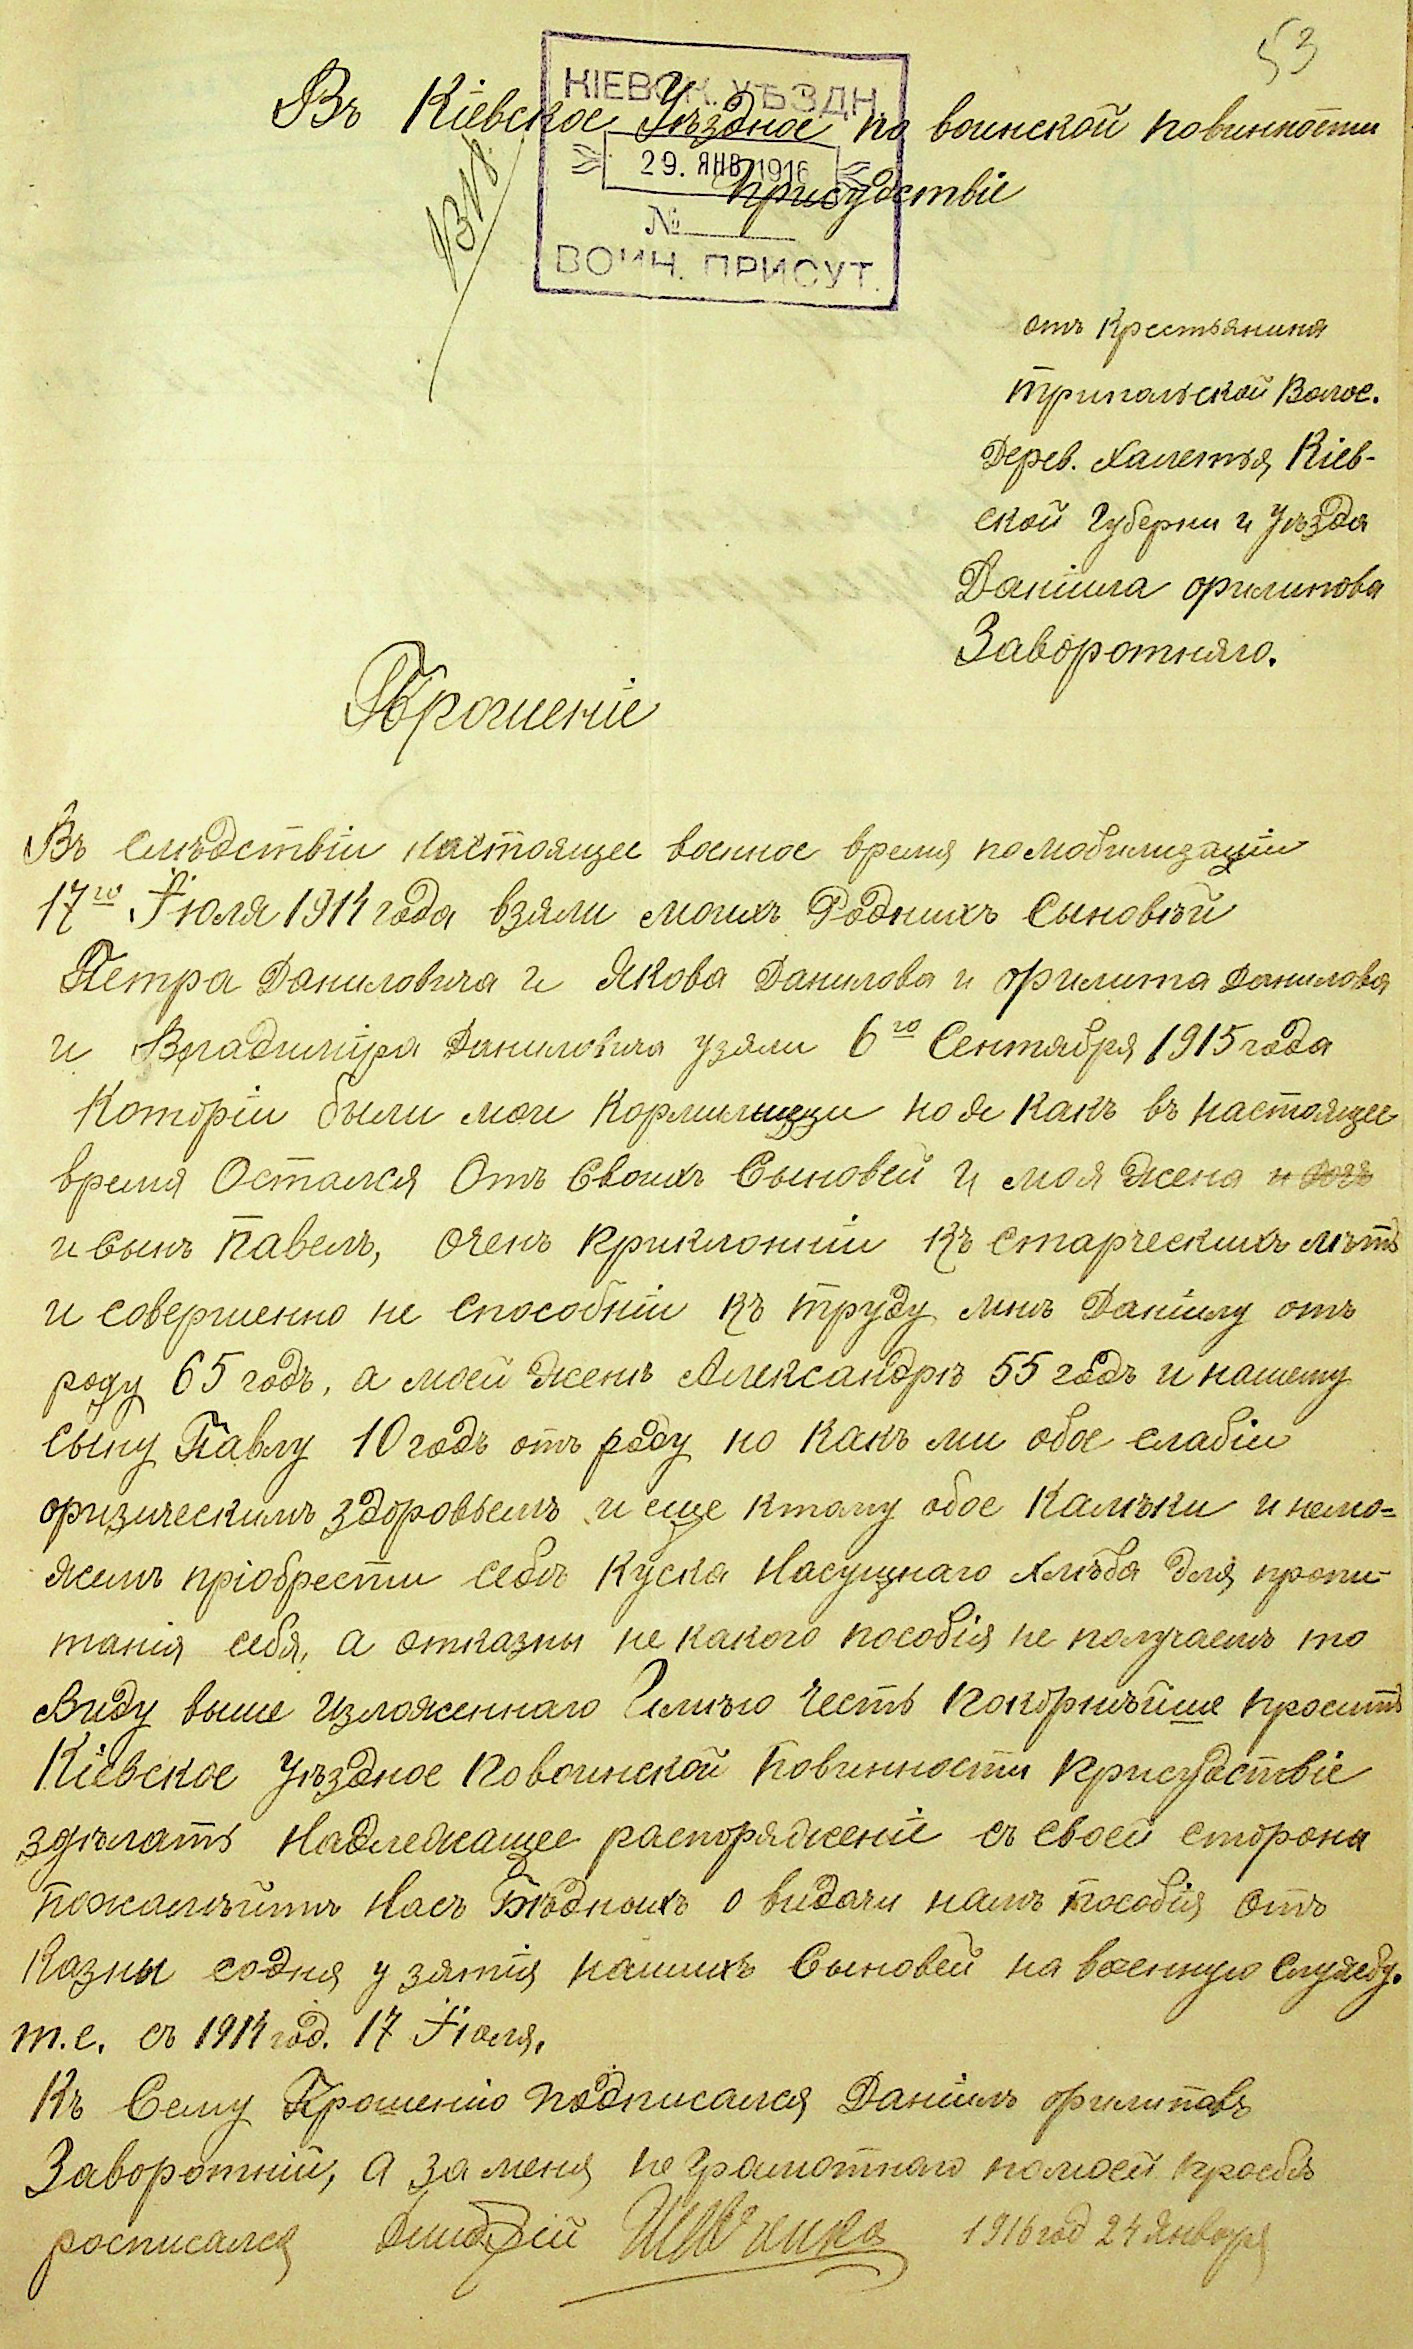 53
Въ Кіевское Уѣздное по воинской повинности
Присудствіе
КІЕВСК. УѢЗДН.
29. ЯНВ 1916
№
ВОИН. ПРИСУТ.
отъ Крестьянина
Трипольской Волос.
Дерев. Халепья, Кіев-
ской Губерни и Уѣзда
Даніила Филипова
Заворотняго.
Прошеніе
Въ слѣдствіи настоящее военное время по мобилизаціи
17го Іюля 1914 года взяли моихъ Родныхъ Сыновѣй
Петра Даниловича и Якова Данилова и Филипа Данилова
и Владиміра Даниловича узяли 6го Сентября 1915 года
Которіи были мои Кормилищи но я Какъ въ настоящее
время Остался Отъ Своихъ Сыновей и моя Жена
и Сынъ Павелъ, очень Приклонніи Къ Старческихъ лѣтъ
и совершенно не способніи Къ труду мнѣ Даніилу отъ
роду 65 годъ, а моей Женѣ Александрѣ 55 годъ и нашему
Сыну Павлу 10 годъ отъ роду но Какъ ми обое слабіи
физическимъ здоровьемъ и еще ктому обое Калѣки и немо=
жемъ пріобрести себѣ Куска Насущнаго Хлѣба для, пропи-
танія себя, а отказны не какого пособія не получаемъ то
Виду выше Изложеннаго Имѣю Честь Покорнѣйше просить
Кіевское Уѣздное По воинской Повинности Присудствіе
здѣлать Надлежащее распоряженіе съ своей сторона
Пожалѣйтѣ Насъ Бѣдныхъ о видачи намъ Пособія Отъ
Казны содня узятія нашихъ Сыновей на военную Службу.
т.е. съ 1914 год. 17 Іюля,
Къ Сему Прошенію Подписался Даніилъ Филиповъ
Заворотній, а за меня не Грамотнаго помоей просьбѣ
росписался Дмитрій Шевченко 1916 год 24 Января